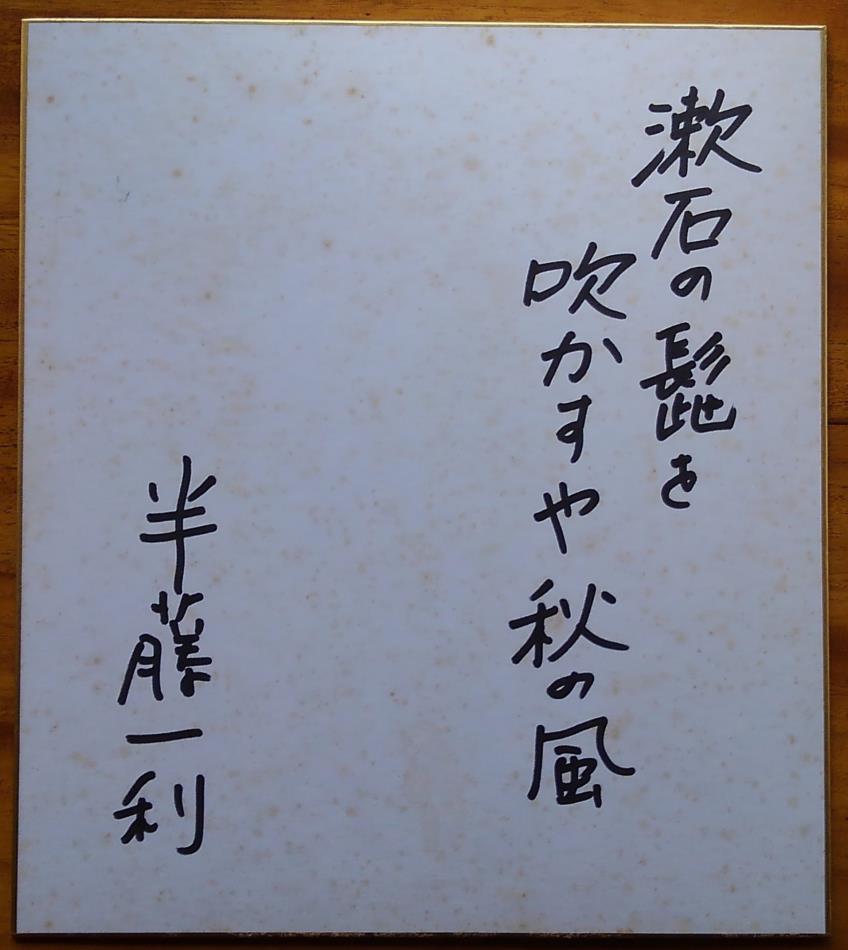 漱石の髭を
吹かすや秋の風
半藤一利